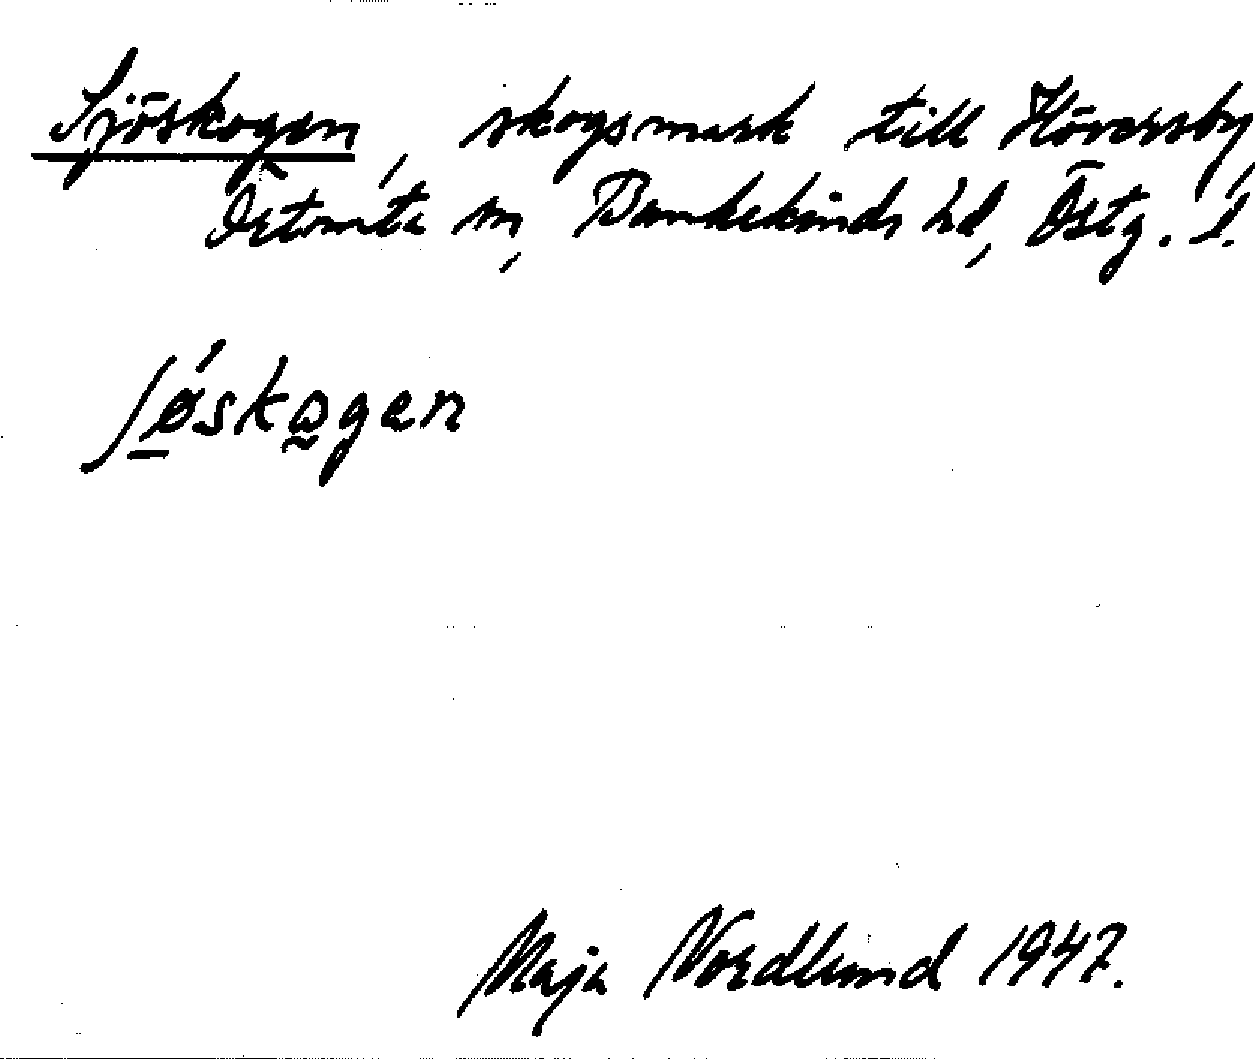 Sjöskogen, skogsmark till Höversby,
Örtomta sn, Bankekinds hd, Östg. l.
ʃǿsko̰gen
Maja Nordlund 1947.